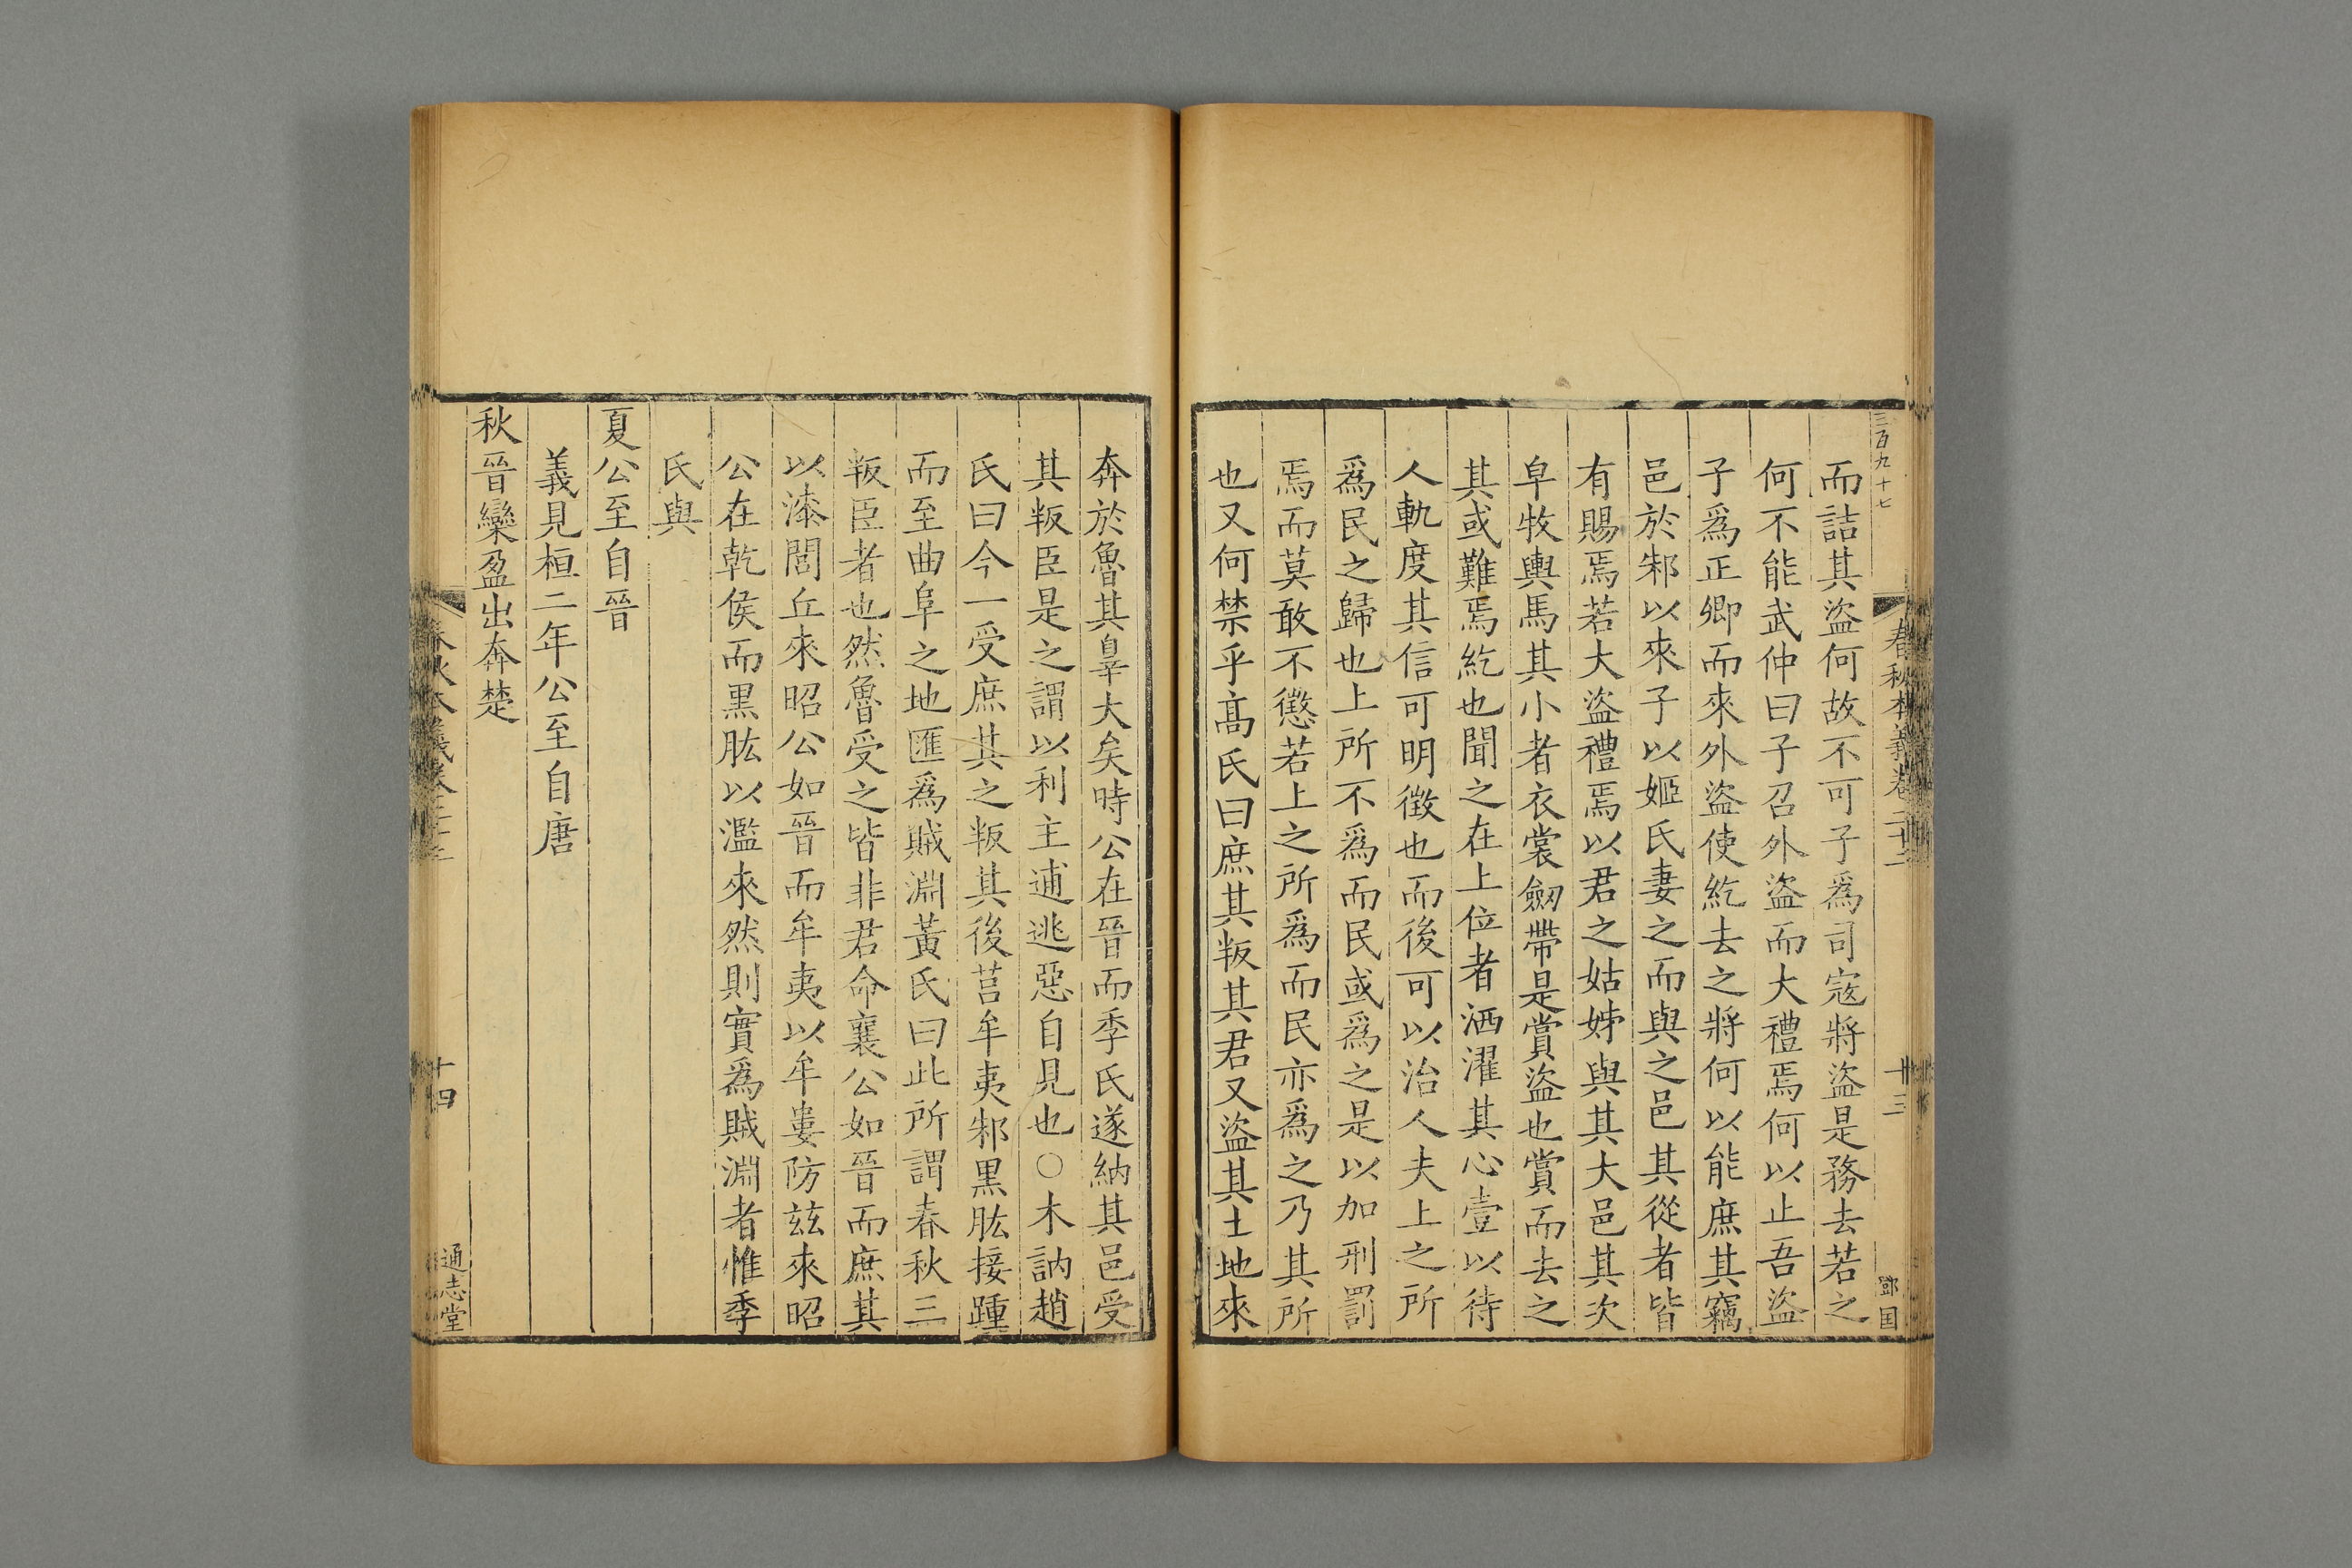 三百九十七
春秋本義卷二十二
十三
鄧国
而詰其盜何故不可子爲司寇將盜是務去若之
何不能武仲曰子召外盜而大禮焉何以止吾盜
子爲正卿而來外盜使紇去之將何以能庶其竊
邑於邾以來子以姬氏妻之而與之邑其從者皆
有賜焉若大盜禮焉以君之姑姊與其大邑其次
皁牧輿馬其小者衣裳劔帶是賞盜也賞而去之
其或難焉紇也聞之在上位者洒濯其心壹以待
人軌度其信可明徵也而後可以治人夫上之所
爲民之歸也上所不爲而民或爲之是以加刑罰
焉而莫敢不懲若上之所爲而民亦爲之乃其所
也又何禁乎髙氏曰庶其叛其君又盜其土地來
奔於魯其辠大矣時公在晉而季氏遂納其邑受
其叛臣是之謂以利主逋逃惡自見也○木訥趙
氏曰今一受庶其之叛其後莒牟夷邾黒肱接踵
而至曲阜之地匯爲賊淵黃氏曰此所謂春秋三
叛臣者也然魯受之皆非君命襄公如晉而庶其
以漆閭丘來昭公如晉而牟夷以牟婁防玆來昭
公在乾侯而黒肱以濫來然則實爲賊淵者惟季
氏與
夏公至自晉
義見桓二年公至自唐
秋晉欒盈出奔楚
十四
通志堂